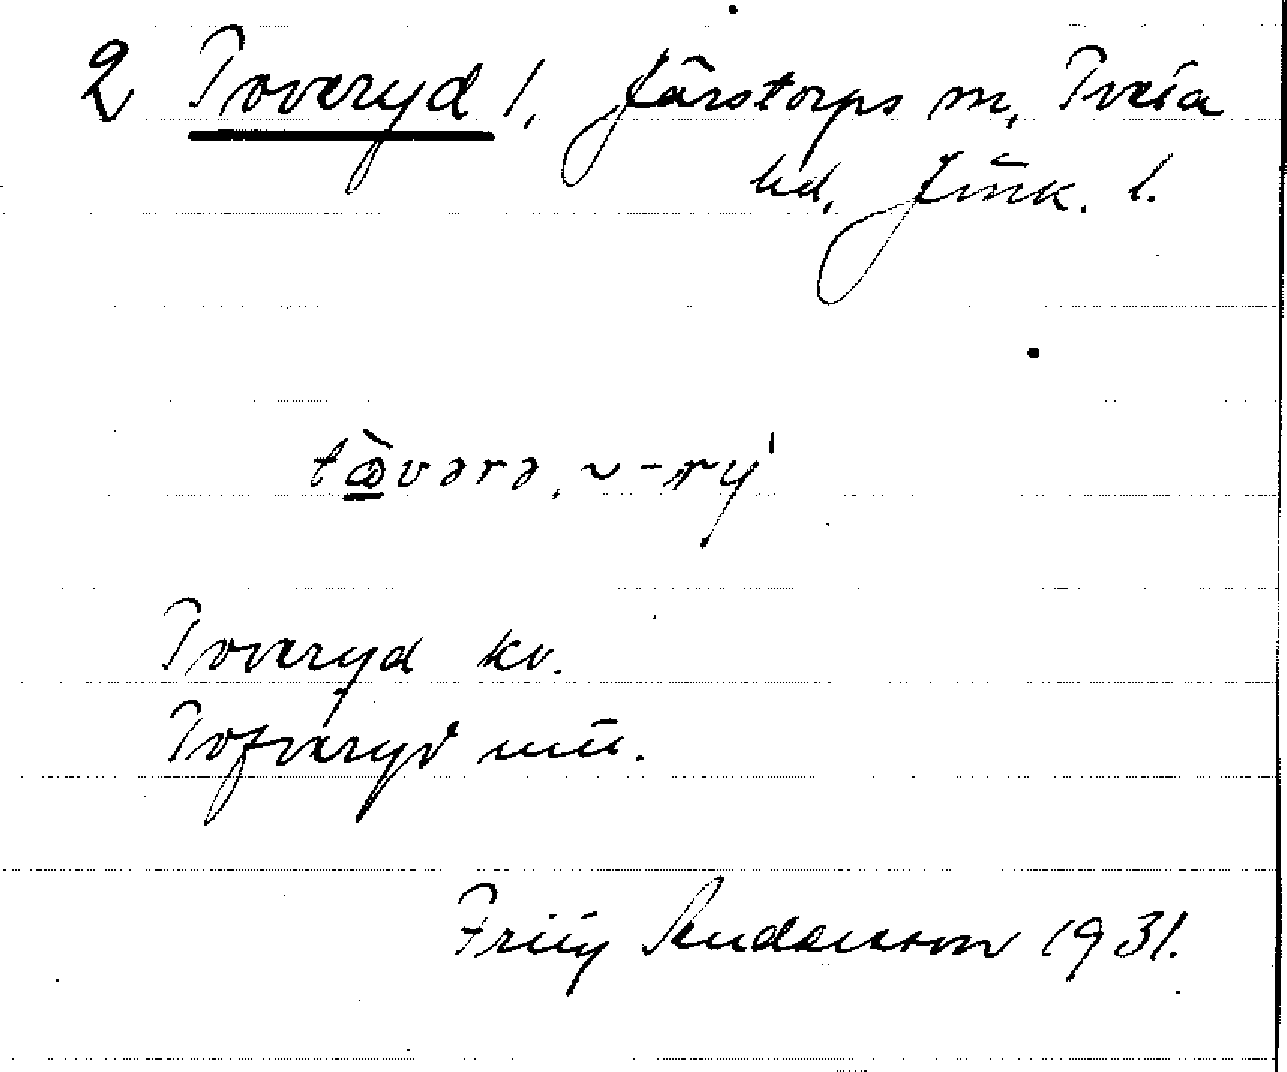 2 Toveryd 1, Järstorps sn, Tveta
hd, Jönk. l.
tὼvərə, ~-rý
Toveryd kv.
Tofveryd mtl.
Friig Andersson 1931.